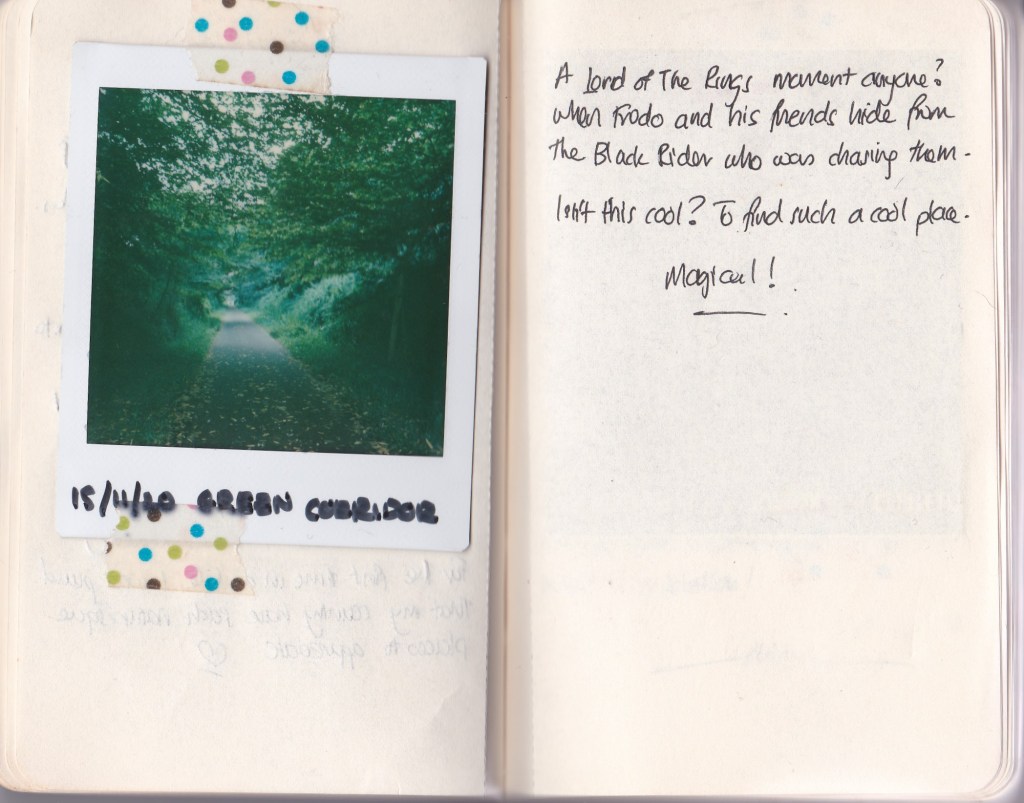 15/11/20 GREEN CORRIDOR
A Lord of The Rings moment anyone?
When Frodo and his friends hide from
the Black Rider who was chasing them.
Isn't this cool? To find such a cool place.
Magical!